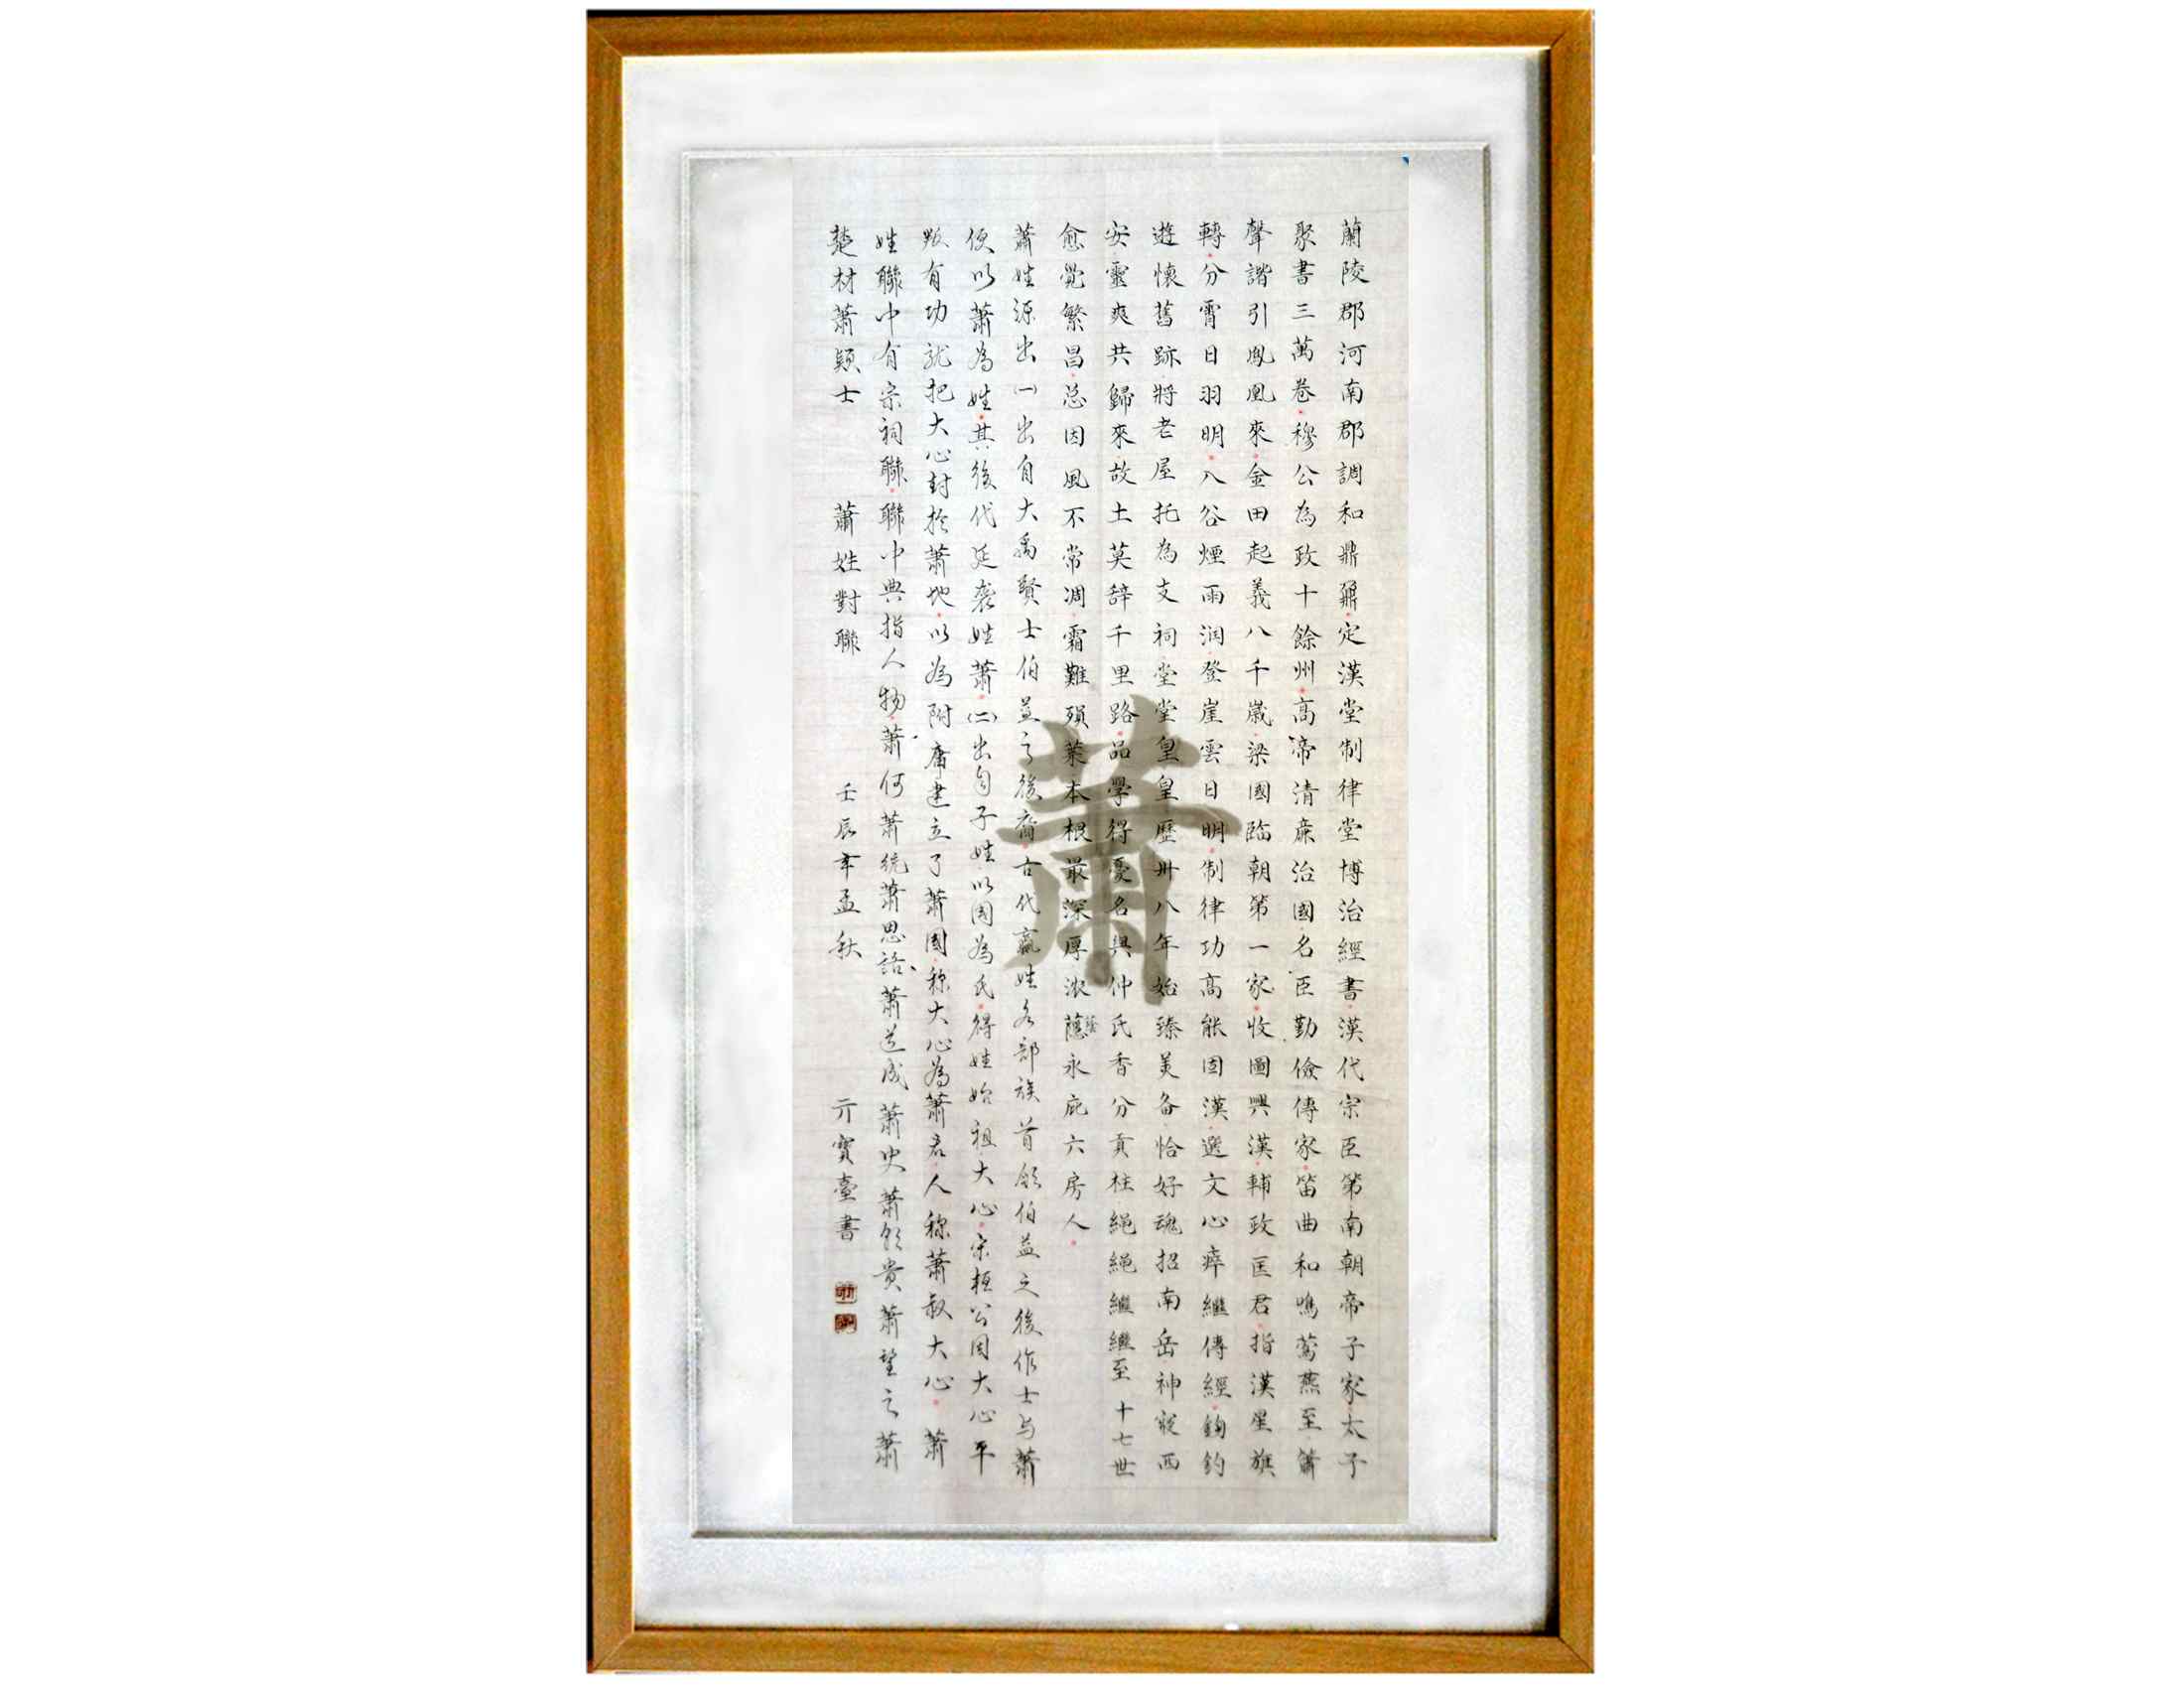 蘭陵郡河南郡調和鼎鼐定漢堂制律堂博治經書漢代宗臣第南朝帝子家太子
聚書三萬卷穆公為政十餘州高帝清廉治國名臣勤儉傳家笛曲和鳴鶯燕至簫
聲諧引鳳凰來金田起義八千歲梁國臨朝第一家收圖興漢輔政匡君指漢星旗
轉分霄日羽明八谷煙雨润登崖雲日明制律功高能固漢選文心瘁繼傳經鉤鈞
遊懷舊跡將老屋托為支祠堂堂皇皇歷卅八年始臻美备恰好魂招南岳神寂西
安靈爽共歸來故土莫辞千里路品學得憂名與仲氏香分貢柱绳繩繼繼至十七世
愈覺繁昌总因風不常凋霜難殞葉本根最深厚浓蔭永庇六房人
蕭姓源出㈠出自大禹賢士伯益之後裔古代嬴姓名部族首領伯益之後作士与蕭
便以蕭為姓其後代延袭姓蕭㈡出自子姓以國為氏得姓始祖大心宗桓公因大心平
叛有功就把大心封於蕭地以為附庸建立了蕭國称大心為蕭君人称蕭叔大心蕭
姓聯中有宗祠聯聯中典指人物蕭何蕭統蕭思話蕭道成蕭史蕭望之蕭
楚材蕭穎士 蕭姓對聯 壬辰年孟秋 亓寶臺書
蕭